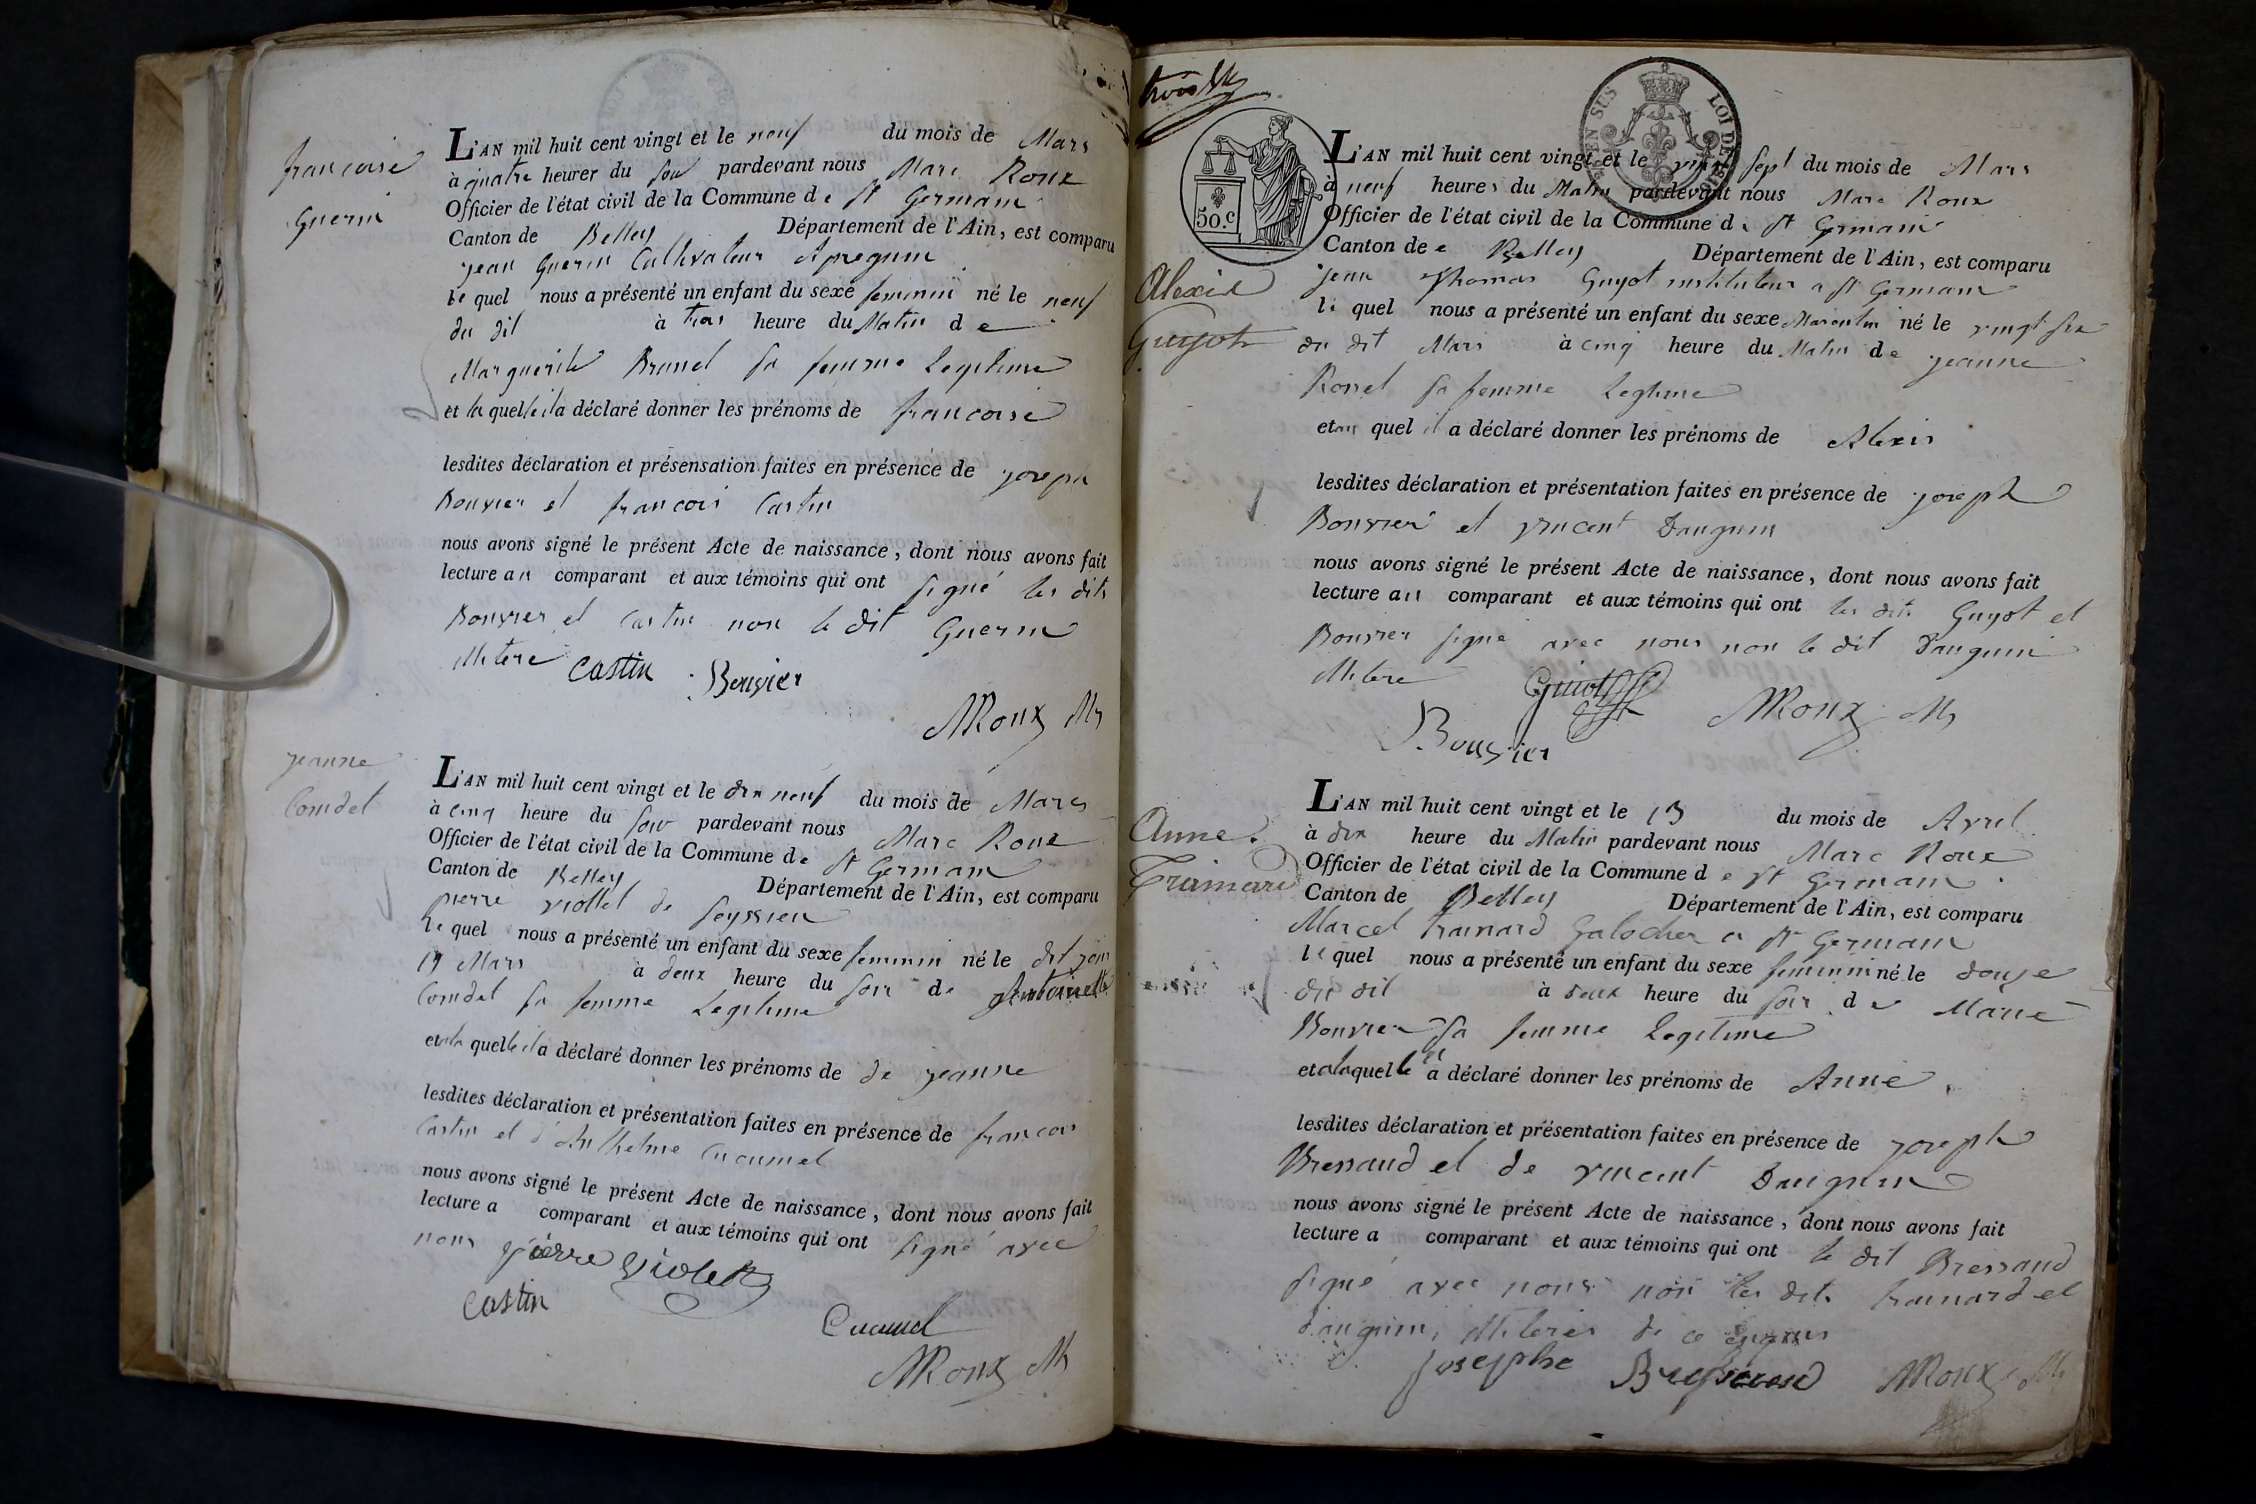 francoise
Guerin
L'AN mil huit cent vingt et le neuf du mois de Mars
à quatre heures du soir pardevant nous Marc Roux
Officier de l'état civil de la Commune de St Germain
Canton de Belley Département de l'Ain, est comparu
jean Guerin Cultivateur Apregnin
le quel nous a présenté un enfant du sexe feminin né le neuf
du dit à trois heure du Matin de
Marguerite Brunel sa femme Legitime
et la quelle il a déclaré donner les prénoms de francoise
lesdites déclaration et présensation faites en présence de joseph
Bouvier et francois Castin
nous avons signé le présent Acte de naissance, dont nous avons fait
lecture au comparant et aux témoins qui ont signé les dits
Bouvier et Castin non le dit Guerin
Miteré
Castin Bouvier
MRoux M
jeanne
Comdet
L'AN mil huit cent vingt et le dix neuf du mois de Mars
à cinq heure du soir pardevant nous Marc Roux
Officier de l'état civil de la Commune de St Germain
Canton de Belley Département de l'Ain, est comparu
pierre viollet de seyssieu
le quel nous a présenté un enfant du sexe feminin né le dit jour
19 Mars à deux heure du soir de Antoinette
Comdet sa femme Legitime
et la quelle il a déclaré donner les prénoms de de jeanne
lesdites déclaration et présentation faites en présence de francois
Castin et d'Anthelme Cucumel
nous avons signé le présent Acte de naissance, dont nous avons fait
lecture a comparant et aux témoins qui ont signé avec
nous pierre violet
Castin
Cucumel
MRoux M
trois
50.c
EN SUS LOI DE
Alexis
Guyot
L'AN mil huit cent vingt et le vingt sept du mois de Mars
à neuf heures du Matin pardevant nous Marc Roux
Officier de l'état civil de la Commune de St Germain
Canton de Belley Département de l'Ain, est comparu
jean Thomas Guyot instituteur a St Germain
le quel nous a présenté un enfant du sexe Masculin né le vingt six
du dit Mars à cinq heure du Matin de jeanne
Rosset sa femme Legtime
et au quel il a déclaré donner les prénoms de Alexis
lesdites déclaration et présentation faites en présence de joseph
Bouvier et vincent Dauguin
nous avons signé le présent Acte de naissance, dont nous avons fait
lecture au comparant et aux témoins qui ont les dits Guyot et
Bouvier signé avec nous non le dit Dauguin
Miteré
Guiot
Bouvier
MRoux M
Anne
Trainard
L'AN mil huit cent vingt et le 13 du mois de Avril
à dix heure du Matin pardevant nous Marc Roux
Officier de l'état civil de la Commune de St Germain
Canton de Belley Département de l'Ain, est comparu
Marcel trainard Galocher a St Germain
le quel nous a présenté un enfant du sexe feminin né le douze
du dit à deux heure du soir de Marie
Bouvier sa femme Legitime
et a la quelle il a déclaré donner les prénoms de Anne
lesdites déclaration et présentation faites en présence de joseph
Bressaud et de vincent Dauguin
nous avons signé le présent Acte de naissance, dont nous avons fait
lecture a comparant et aux témoins qui ont le dit Bressaud
signé avec nous non les dits trainard et
dauguin, Miterés de ce enquis
josephe Bressaud
MRoux M